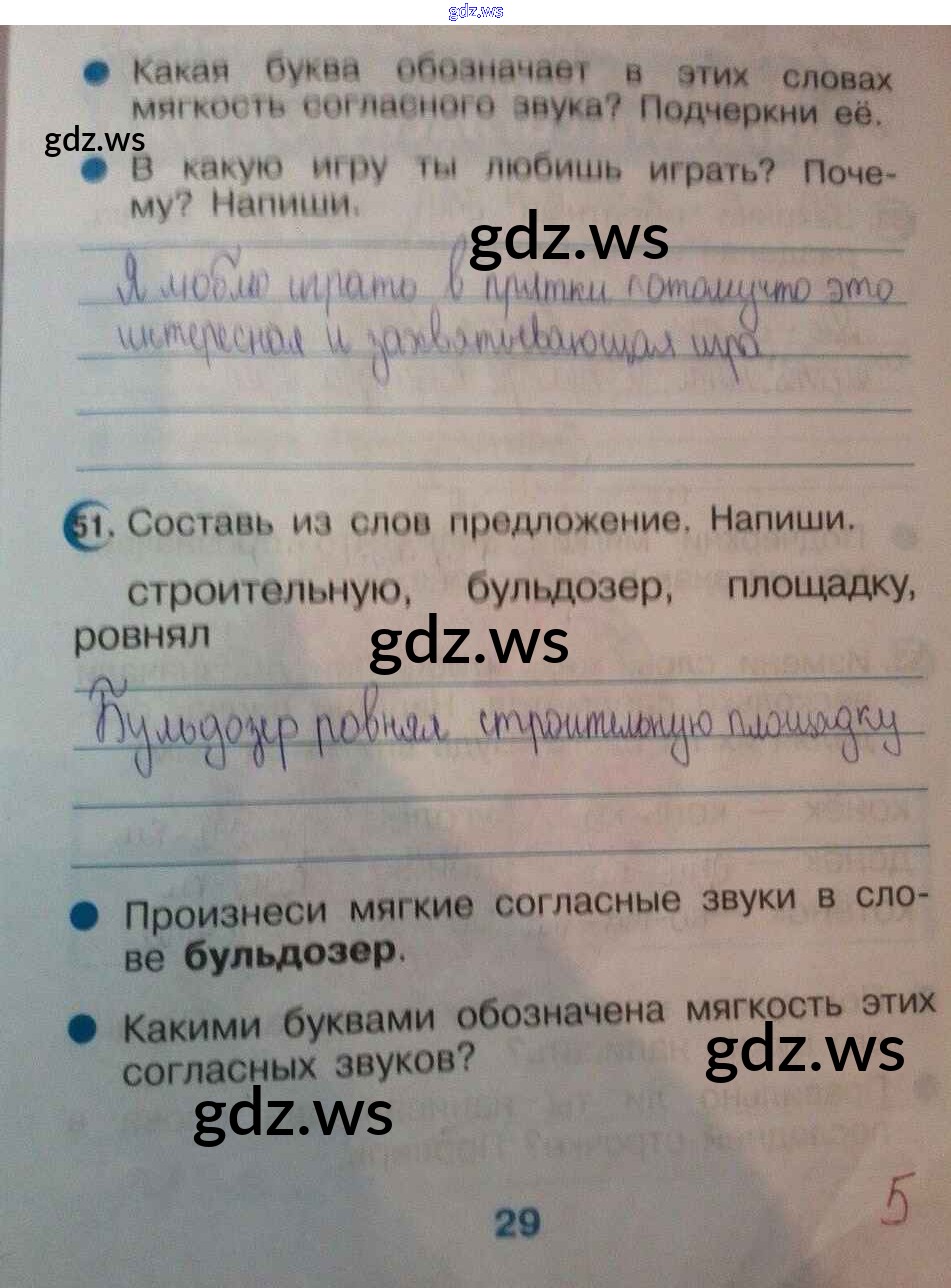 gdz.ws
Какая буква обозначает в этих словах
мягкость согласного звука? Подчеркни её.
gdz.ws
В какую игру ты любишь играть? Поче-
му? Напиши.
gdz.ws
Я люблю играть в прятки потомучто это
интересная и захватывающая игра
51. Составь из слов предложение. Напиши.
строительную, бульдозер, площадку,
ровнял
gdz.ws
Бульдозер ровнял строительную площадку
Произнеси мягкие согласные звуки в сло-
ве бульдозер.
Какими буквами обозначена мягкость этих
согласных звуков?
gdz.ws
gdz.ws
5
29